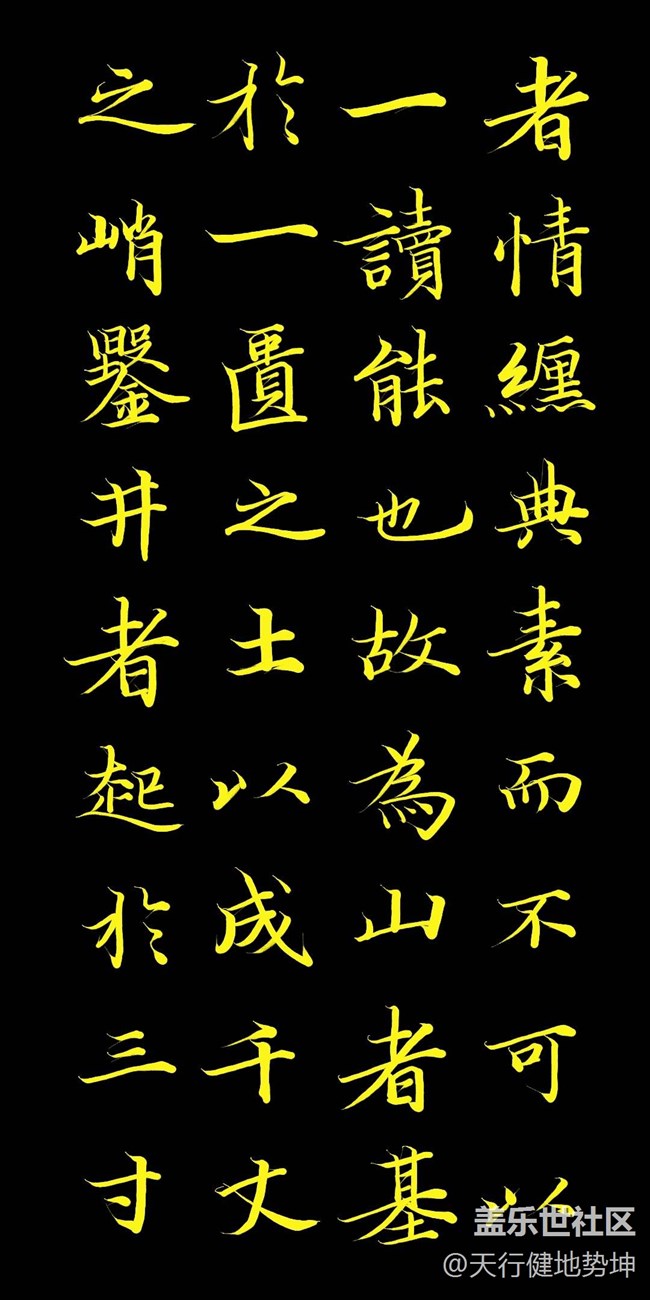 者情纒典素而不可以
一讀能也故為山者基
於一匱之土以成千丈
之峭鑿井者起於三寸
盖乐世社区
@天行健地势坤